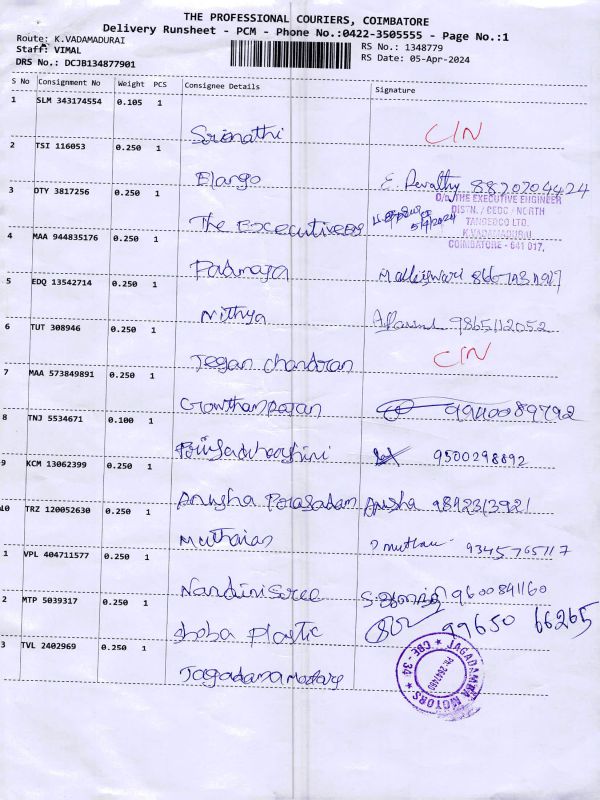 THE PROFESSIONAL COURIERS, COIMBATORE
Delivery Runsheet - PCM - Phone No.:0422-3505555 - Page No.:1
Route: K.VADAMADURAI
RS No.: 1348779
Staff: VIMAL
RS Date: 05-Apr-2024
DRS No.: DCJB134877901
S No Consignment No Weight PCS Consignee Details Signature
1 SLM 343174554 0.105 1
Srimathi C/N
2 TSI 116053 0.250 1
Elango E. Revathy 8820704424
3 DTY 3817256 0.250 1
The Executive 5/4/2024
O/o. THE EXECUTIVE ENGINEER
DISTN. / CEDC / NORTH
TANGEDCO LTD.
K.VADAMADURAI
COIMBATORE - 641 017.
4 MAA 944835176 0.250 1
Padmaja Malleiswari
5 EDQ 13542714 0.250 1
Nithya
6 TUT 308946 0.250 1
Jegan chandran C/N
7 MAA 573849891 0.250 1
Gowthamrajan 9940089792
8 TNJ 5534671 0.100 1
9500298892
9 KCM 13062399 0.250 1
Anusha Anusha 9842313921
10 TRZ 120052630 0.250 1
Muthaian muthu 9345765117
1 VPL 404711577 0.250 1
Nandini Sree 9600841160
2 MTP 5039317 0.250 1
Shoba Plastic 99650 66265
3 TVL 2402969 0.250 1
JAGADAMBA MOTORS
CBE - 34